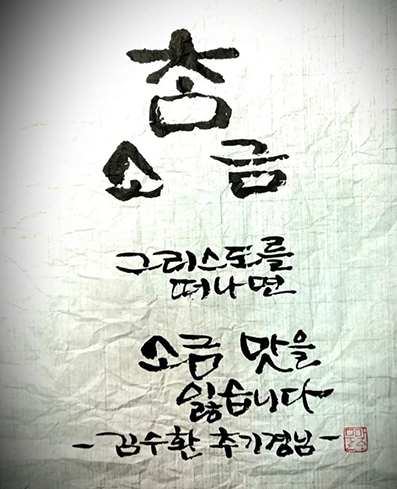 참
소금
그리스도를
떠나면
소금 맛을
잃습니다
- 김수환 추기경님 -